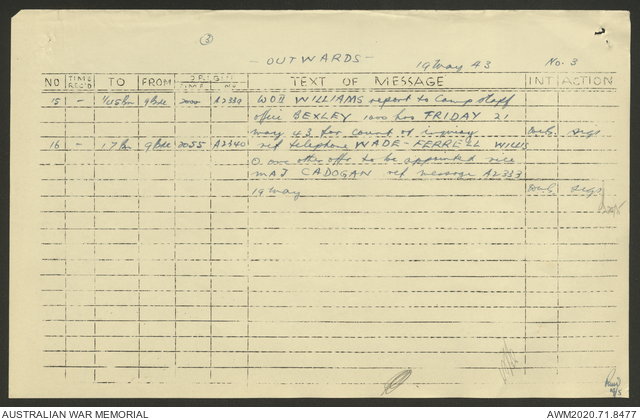 ③
- OUTWARDS - 19 May 43 No. 3
NO TIME REC'D TO FROM ORIGINS TIME NO. TEXT OF MESSAGE INT ACTION
15 - 1/45 Bn 9 Bde 2000 A2339 WOII WILLIAMS report to Camp staff
office BEXLEY 1000 hrs FRIDAY 21
May 43 for Court of inquiry sigs
16 - 17 Bn 9 Bde 2055 A2340 ref telephone WADE-FERRELL WILLIS
one other offr to be appointed vice
MAJ CADOGAN ref message A2333
19 May sigs
AUSTRALIAN WAR MEMORIAL AWM2020.71.8477